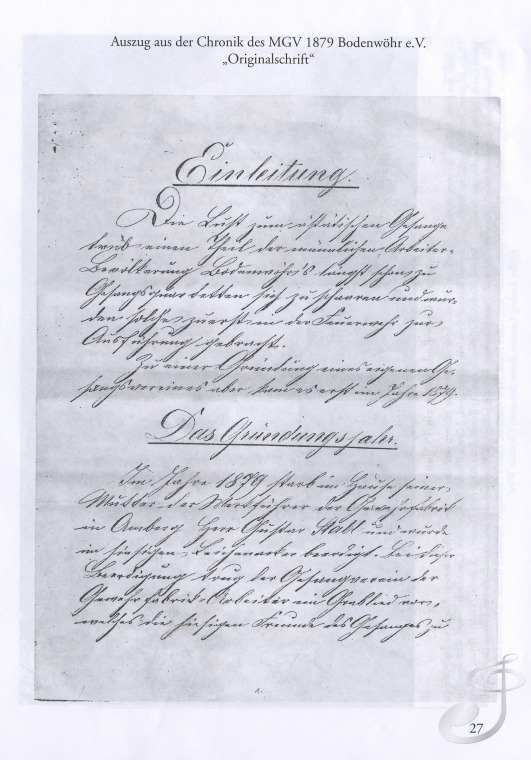 Auszug aus der Chronik des MGV 1879 Bodenwöhr e.V.
„Originalschrift“
Einleitung.
Die Lust zum ästätischen Gesange
trieb einen Theil der männlichen Arbeiter-
Bevölkerung Bodenwöhr's längst schon zu
Gesangsquartetten sich zu schaaren und wur-
den solche zuerst in der Feuerwehr zur
Ausführung gebracht.
Zu einer Gründung eines eigenen Ge-
sangsvereines aber kam es erst im Jahre 1879.
Das Gründungsjahr.
Im Jahre 1879 starb im Hause seiner
Mutter der Werkführer der Gewehrfabrik
in Amberg Herr Gustav Stabl und wurde
im hiesigen beerdigt. Bei
Beerdigung trug der Gesangverein der
Gewehrfabrik-Arbeiter ein Grablied vor,
welches die hiesigen Freunde des Gesanges zu
27